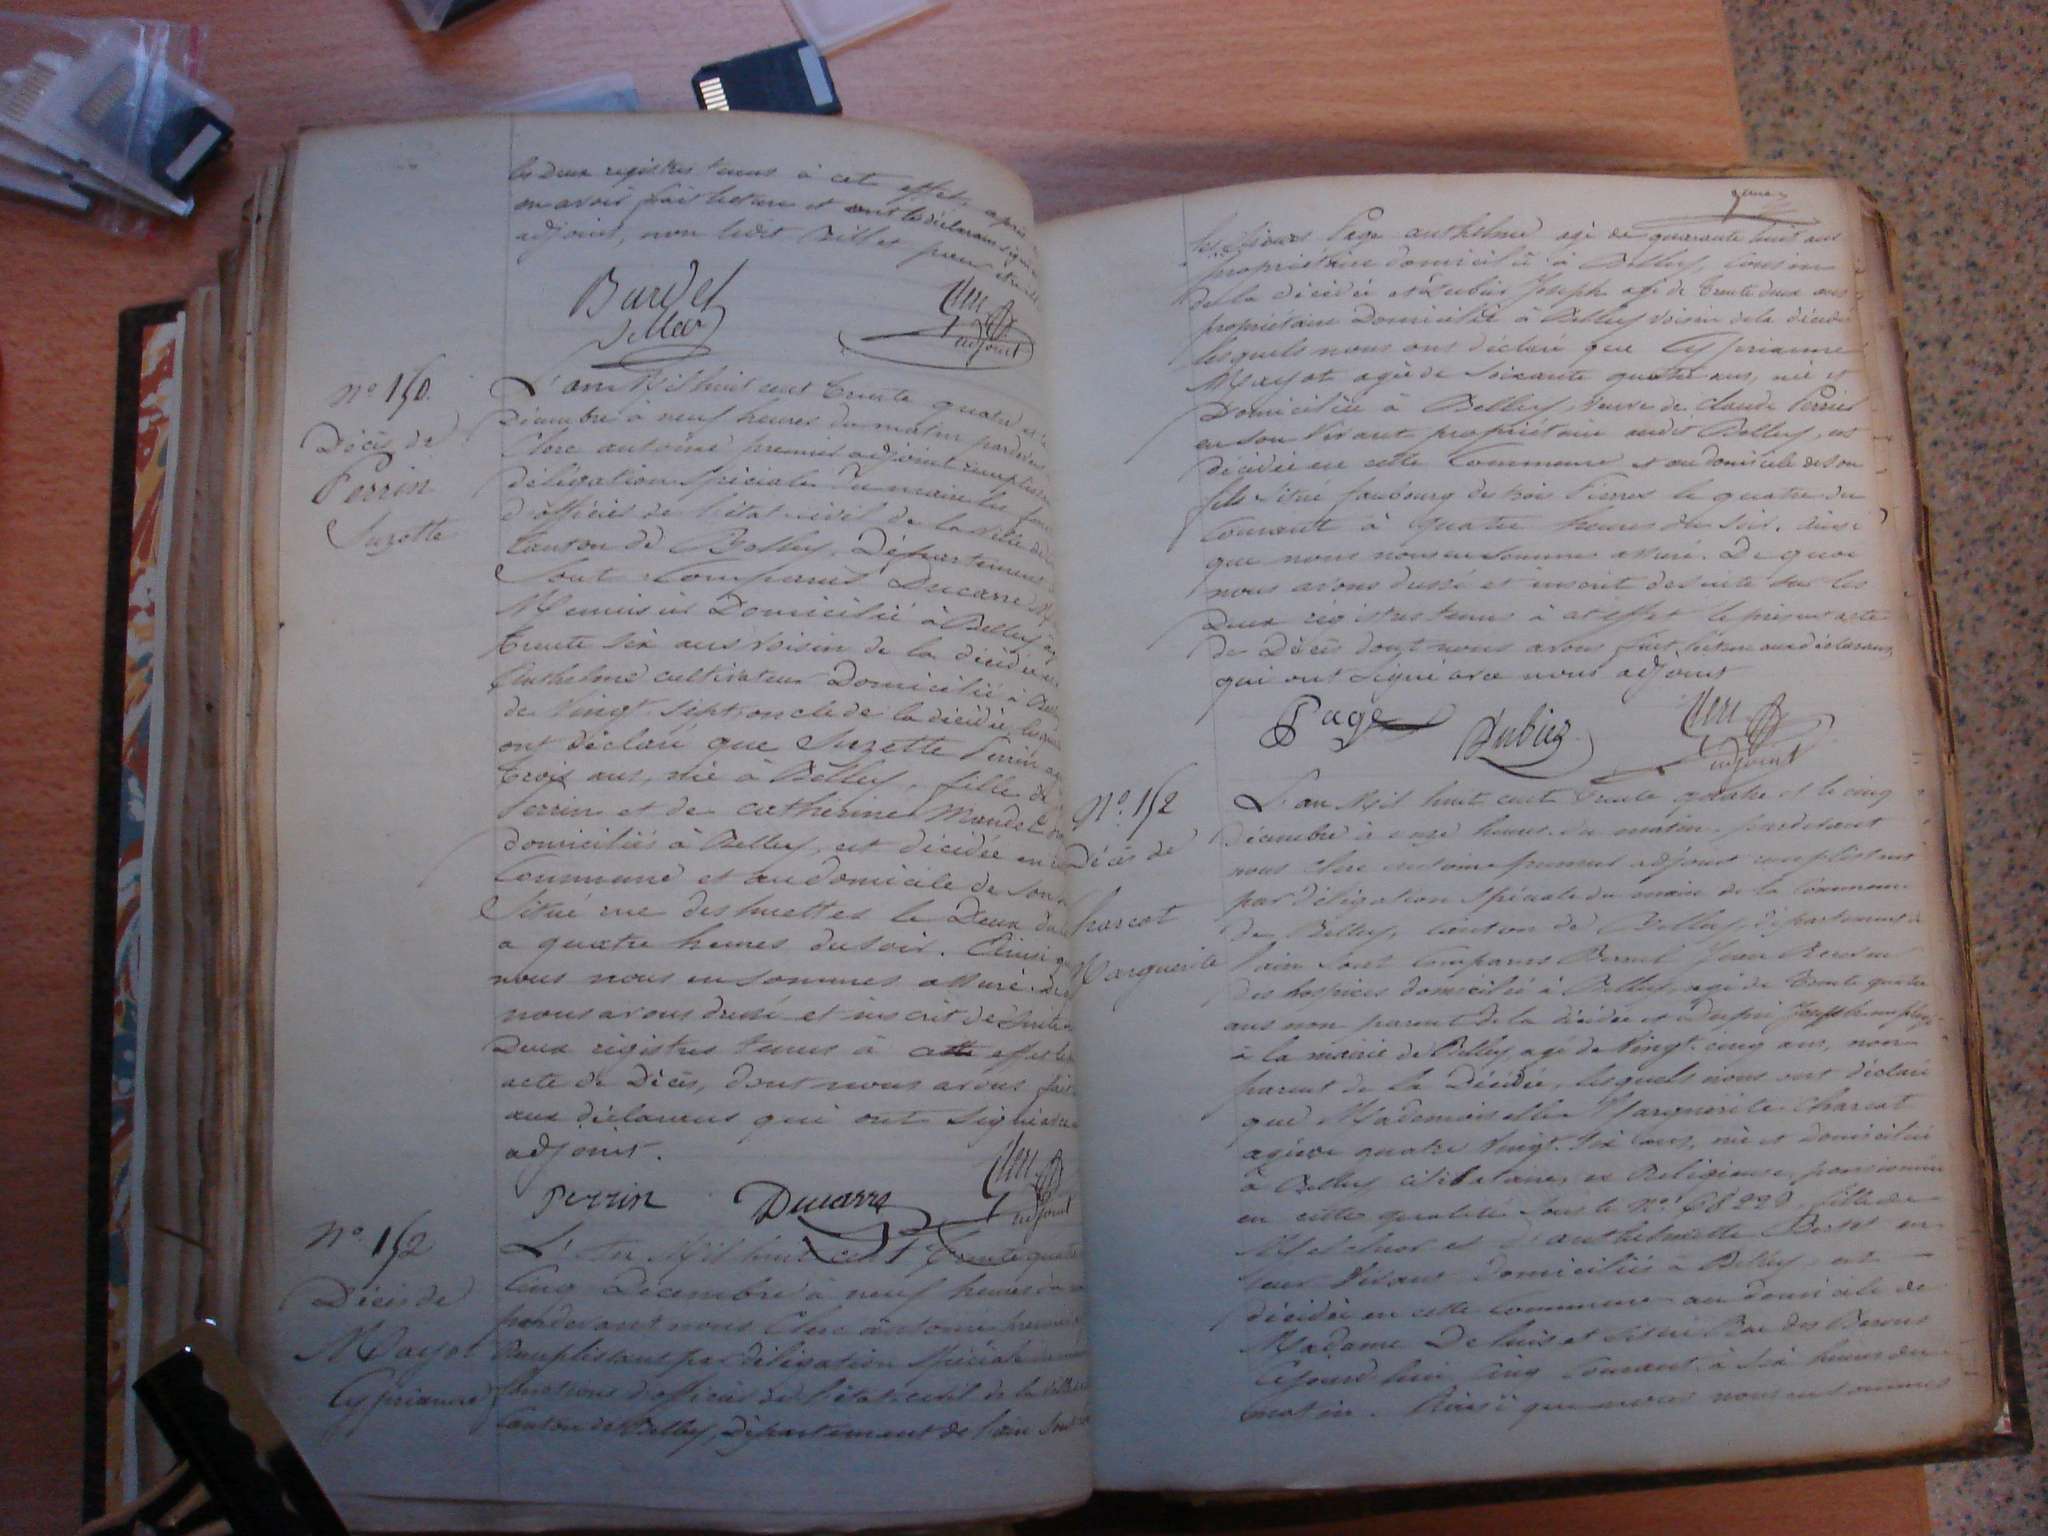 les deux registres tenus à cet effet, après
en avoir fait lecture et ont les déclarans signé
adjoint, non ledit Billet pour
Bardet
adjoint
No 150.
Décès de
Perrin
Suzette
L'an Mil huit cent trente quatre et le
Décembre à neuf heures du matin pardevant
Clerc antoine premier adjoint remplissant
délégation Spéciale du maire les fonc
d'officier de l'état civil de la Ville de
Canton de Belley, Département
Sont Comparus Ducarre
Menuisier Domicilié à Belley agé
trente six ans voisin de la décédée et
Anthelme cultivateur Domicilié à Belley
de Vingt Sept, oncle de la décédée, lesquels
ont déclaré que Suzette Perrin agée
trois ans, née à Belley, fille de
Perrin et de catherine
domiciliés à Belley, est décédée en cette
Commune et au domicile de son
Situé rue des huettes le Deux du
a quatre heures du soir. Ainsi que
nous nous en sommes assuré. De
nous avons dressé et inscrit de suite
Deux registres tenus à cette effet le
acte de Décès, dont nous avons fait
aux déclarans qui ont signé avec
adjoint.
Perrin Ducarre
adjoint
No 152
Décès de
Mayot
Cyprianne
L'an Mil huit cent trente quatre
Cinq Décembre à neuf heures du
pardevant nous Clerc antoine premier
Remplissant par délégation Spéciale
fonctions d'officier de l'état civil de la Ville
Canton de Belley, Département de l'ain Sont
les Sieurs Page anthelme agé de quarante huit ans
propriétaire domicilié à Belley, Cousin
de la décédée et Dubiez Joseph agé de trente deux ans
propriétaire Domicilié à Belley voisin de la décédée
lesquels nous ont déclaré que Cyprianne
Mayot agée de Soixante quatre ans, née et
Domiciliée à Belley, Veuve de Claude Perrier
en son Vivant propriétaire audit Belley, est
décédée en cette Commune et au domicile de son
fils Situé faubourg de trois Pierres le quatre du
Courant à quatre heures du Soir. ainsi
que nous nous en Sommes assuré. De quoi
nous avons dressé et inscrit de suite sur les
Deux registres tenus à cet effet le présent acte
de Décès dont nous avons fait lecture aux déclarans
qui ont signé avec nous adjoint
Page Dubiez
adjoint
No 152
Décès de
Charcot
Marguerite
L'an Mil huit cent trente quatre et le cinq
décembre à onze heures du matin pardevant
nous Clerc antoine premier adjoint remplissant
par délégation Spéciale du maire de la Commune
de Belley, canton de Belley, département de
l'ain Sont Comparus Jean
des hospices domicilié à Belley, agé de trente quatre
ans non parent de la décédée et Dupui Joseph employé
à la mairie de Belley agé de Vingt cinq ans, non
parent de la Décédée, lesquels nous ont déclaré
que Mademoiselle Marguerite Charcot
agée de quatre Vingt Six ans, née et domiciliée
à Belley célibataire, ex Religieuse, pensionnée
en cette qualité sous le No. 68229 fille de
Melchior et d'anthelmette
leur Vivant Domiciliés à Belley est
décédée en cette Commune au domicile de
Madame Situé Rue des Barons
Cejourd'hui Cinq Courant à six heures du
matin. Ainsi que nous nous en sommes